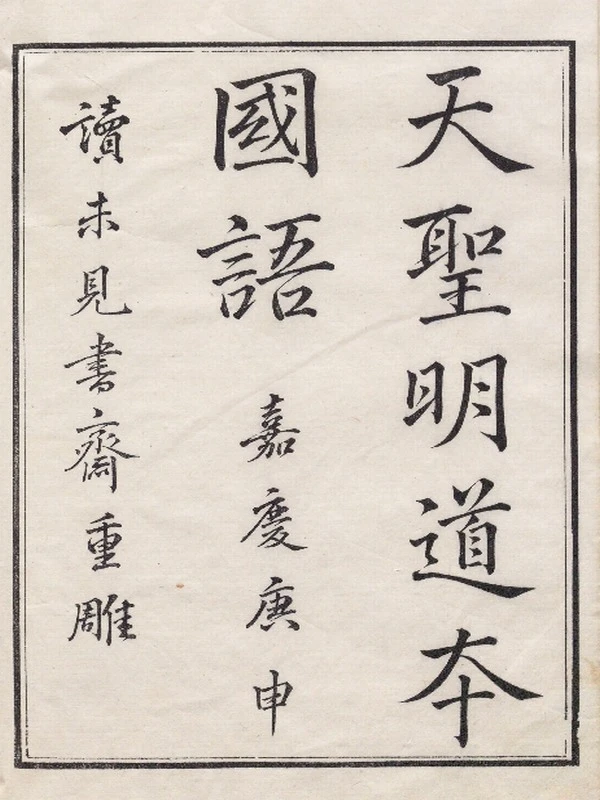 天聖明道本
國語 嘉慶庚申
讀未見書齋重雕